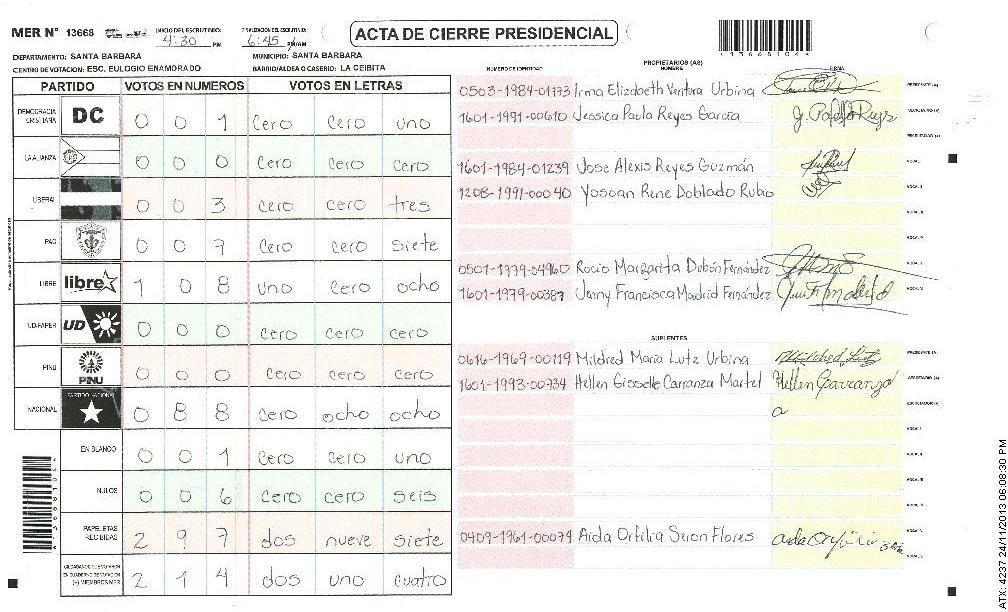 MER N° 13668 INICIO DEL ESCRUTINIO: 4:30 PM 6:45 PM/AM ACTA DE CIERRE PRESIDENCIAL
DEPARTAMENTO: SANTA BARBARA MUNICIPIO: SANTA BARBARA
CENTRO DE VOTACION: ESC. EULOGIO ENAMORADO BARRIO/ALDEA O CASERIO: LA CEIBITA
PARTIDO VOTOS EN NUMEROS VOTOS EN LETRAS
DEMOCRACIA CRISTIANA DC 0 0 1 cero cero uno
LA ALIANZA 0 0 0 cero cero cero
LIBERAL 0 0 3 cero cero tres
PAC 0 0 7 cero cero siete
LIBRE libre 1 0 8 uno cero ocho
UD-FAPER UD 0 0 0 cero cero cero
PINU PINU 0 0 0 cero cero cero
NACIONAL PARTIDO NACIONAL 0 8 8 cero ocho ocho
EN BLANCO 0 0 1 cero cero uno
NULOS 0 0 6 cero cero seis
PAPELETAS RECIBIDAS 2 9 7 dos nueve siete
CIUDADANOS QUE VOTARON
EN CUADERNO DE VOTACION
(+) MIEMBROS MER 2 1 4 dos uno cuatro
NUMERO DE IDENTIDAD PROPIETARIOS (AS) NOMBRE FIRMA
0503-1984-01773 Irma Elizabeth Ventura Urbina PRESIDENTE (A)
1601-1991-00610 Jessica Paola Reyes García SECRETARIO (A)
ESCRUTADOR (A)
1601-1984-01239 Jose Alexis Reyes Guzmán
1208-1991-00040 Yosoan Rene Doblado Rubio
0501-1979-04960 Rocio Margarita Dubón Fernández
1601-1979-00387 Jenny Francisca Madrid Fernández
SUPLENTES
0616-1969-00119 Mildred Maria Lutz Urbina Mildred Lutz PRESIDENTE (A)
1601-1993-00734 Hellen Gisselle Carranza Martel Hellen Carranza SECRETARIO (A)
ESCRUTADOR (A)
0409-1961-00074 Aida Orfilia Seron Flores
*13668104*
ATX: 4237 24/11/2013 06:08:30 PM